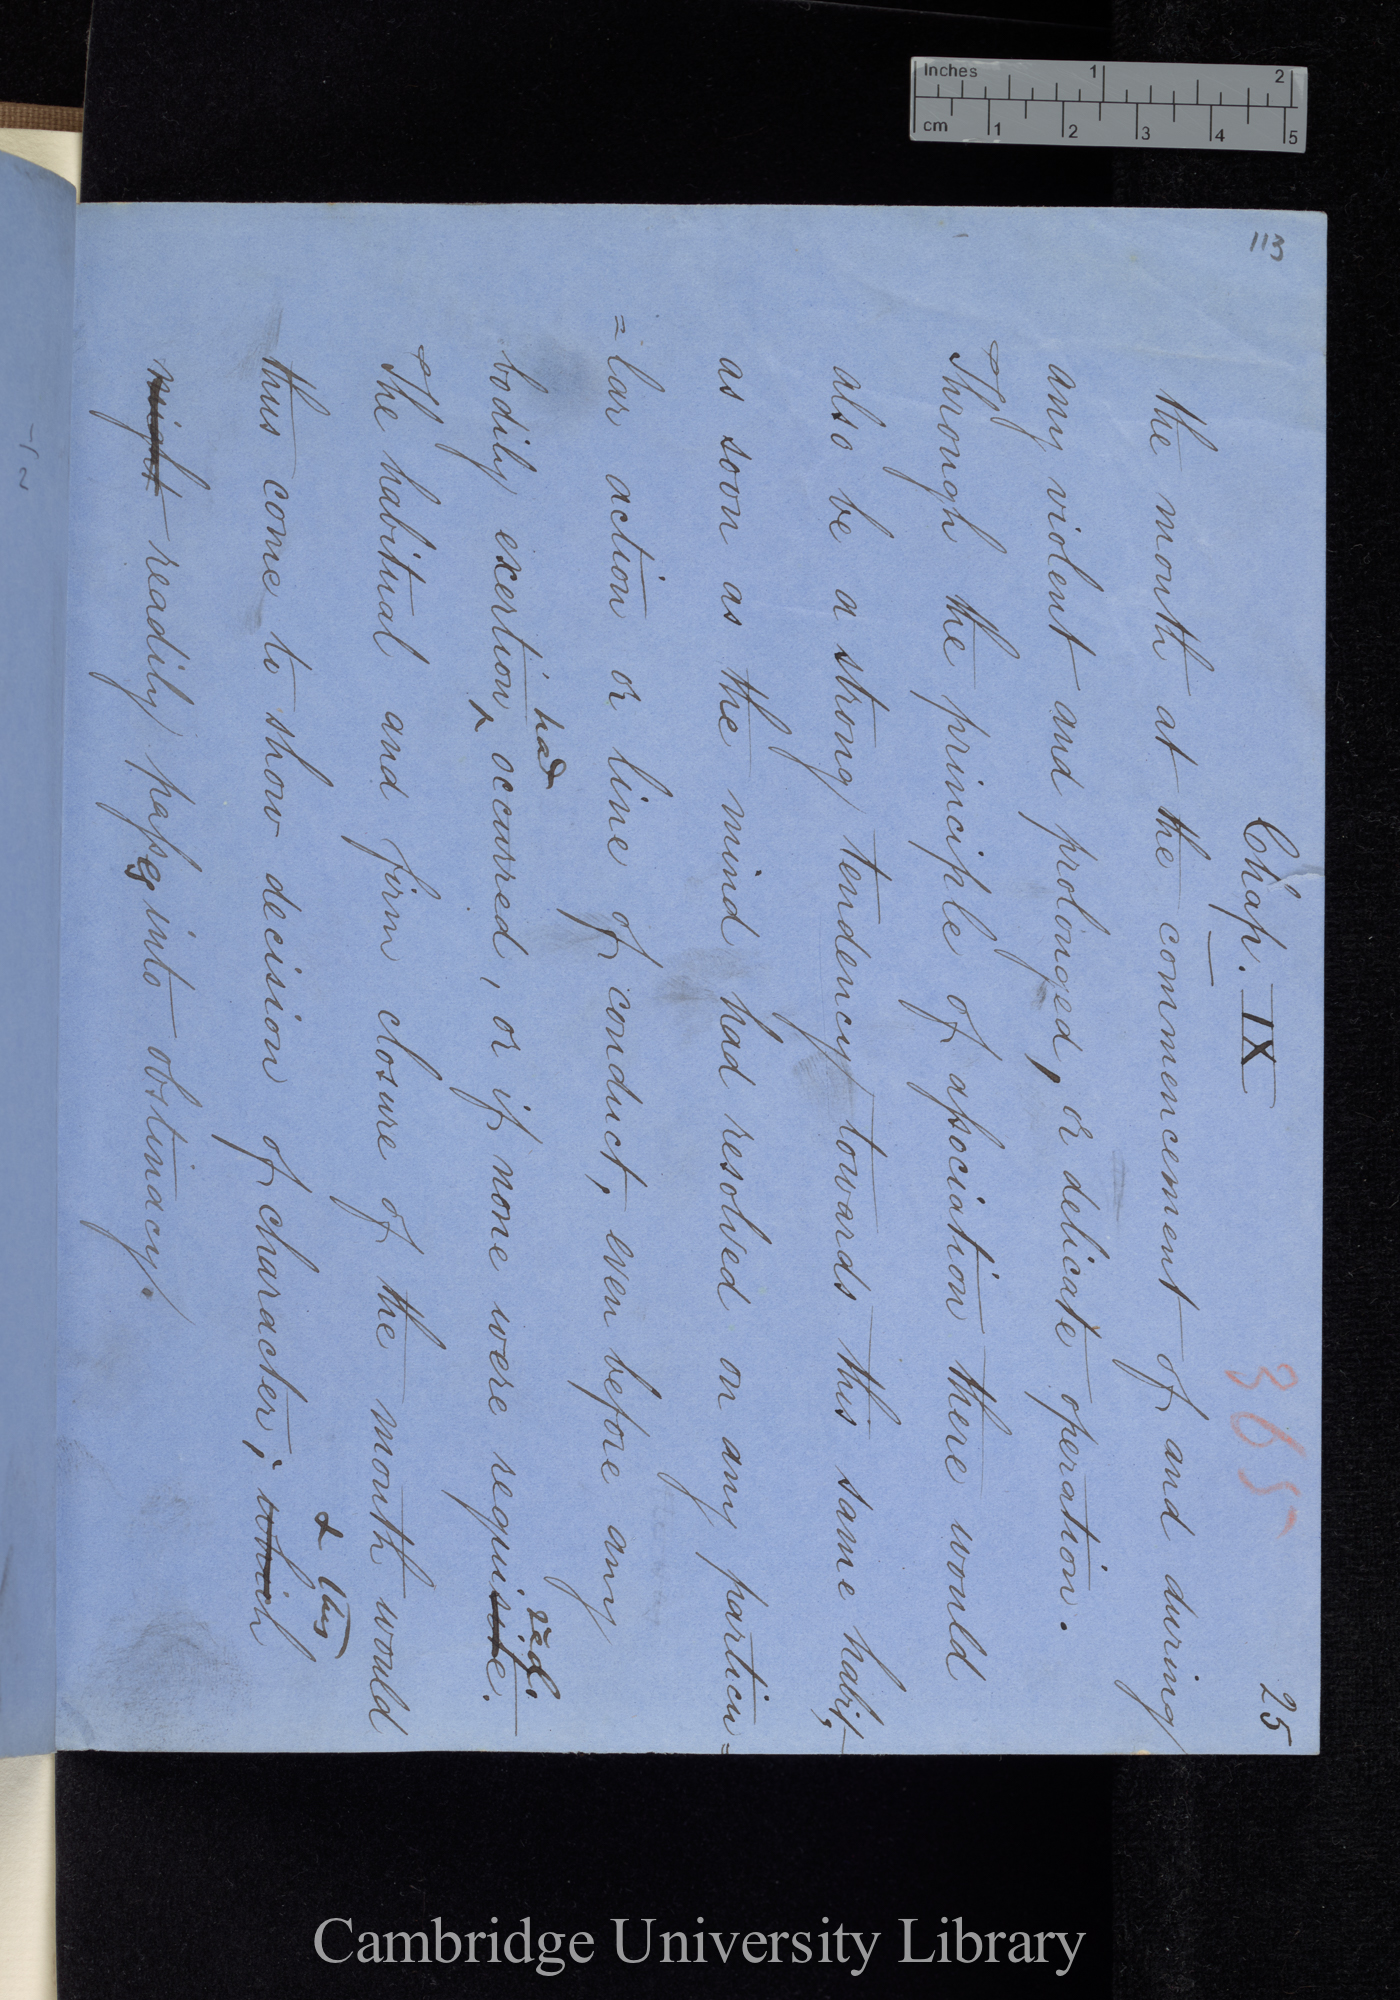 Inches 1 2
cm 1 2 3 4 5
113
Chap. IX
365
25
the mouth at the commencement of and during
any violent and prolonged, or delicate operation.
Through the principle of association there would
also be a strong tendency towards this same habit,
as soon as the mind had resolved on any particu=
=lar action or line of conduct, even before any
bodily exertion had occurred, or if none were requisite. red.
The habitual and firm closure of the mouth would
thus come to show decision of character; which & this
might readily passes into obstinacy.
Cambridge University Library